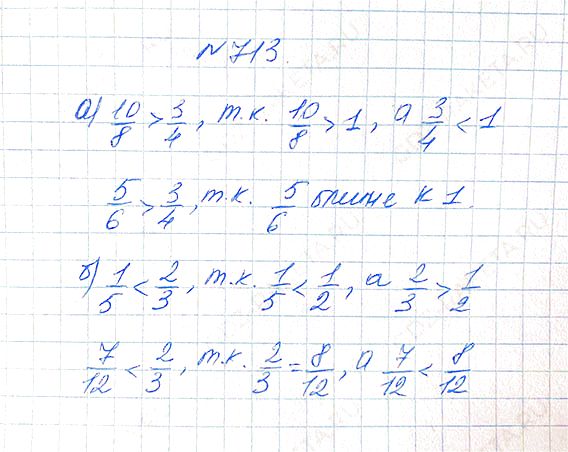 N 713.
а) 10/8 > 3/4, т.к. 10/8 > 1, а 3/4 < 1
5/6 > 3/4, т.к. 5/6 ближе к 1.
б) 1/5 < 2/3, т.к. 1/5 < 1/2, а 2/3 > 1/2
7/12 < 2/3, т.к. 2/3 = 8/12, а 7/12 < 8/12